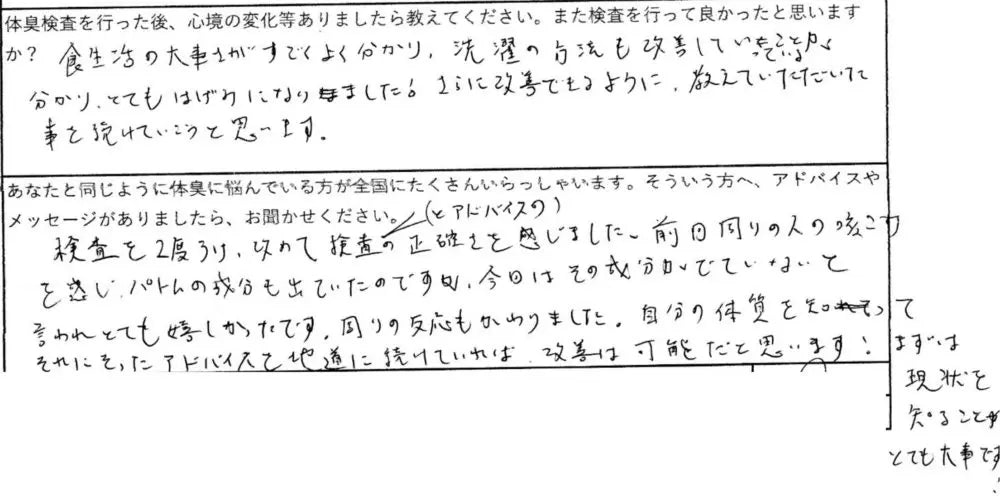 体臭検査を行った後、心境の変化等ありましたら教えてください。また検査を行って良かったと思います
か? 食生活の大事さがすごくよく分かり、洗濯の方法も改善していることが
分かり、とてもはげみになりました。さらに改善できるように、教えていただいた
事を続けていこうと思います。
あなたと同じように体臭に悩んでいる方が全国にたくさんいらっしゃいます。そういう方へ、アドバイスや
メッセージがありましたら、お聞かせください。
(とアドバイスの)
検査を2度うけ、改めて検査の正確さを感じました。前回周りの人の咳こみ
を感じ、パトムの成分も出ていたのですが、今回はその成分がでていないと
言われとても嬉しかったです。周りの反応もかわりました。自分の体質を知って
それにそったアドバイスを地道に続けていれば、改善は可能だと思います!
まずは
現状を
知ることが
とても大事です